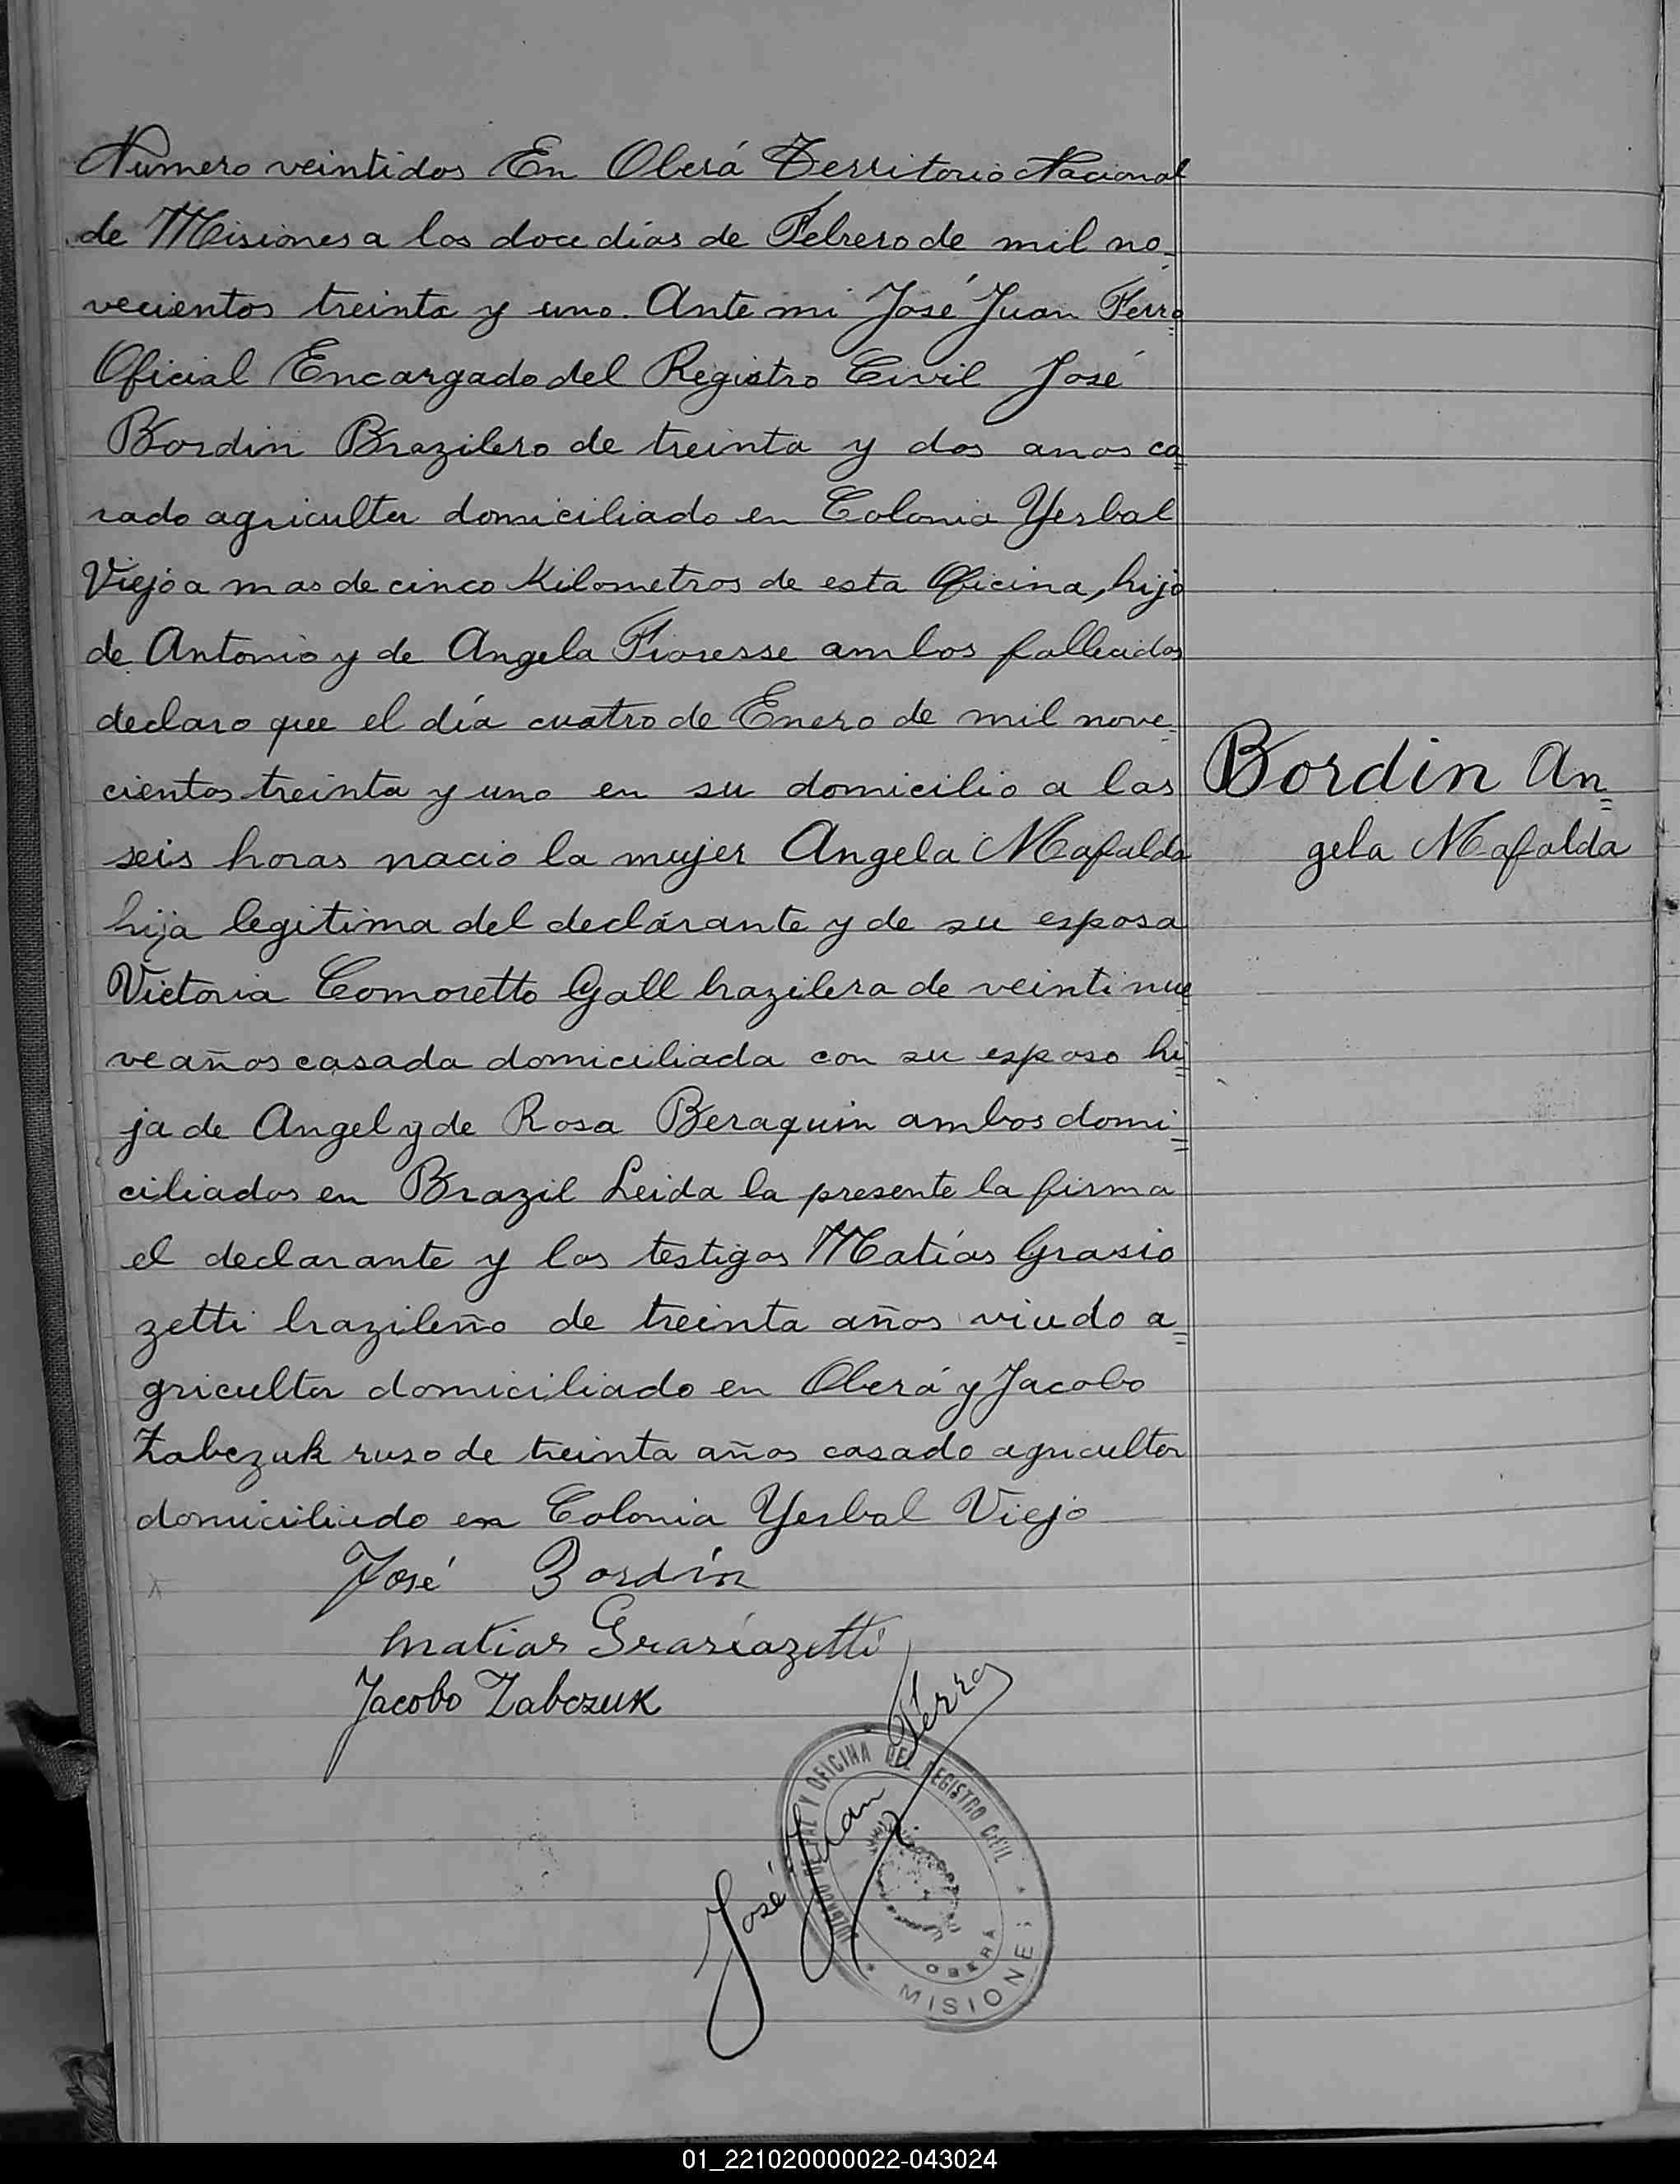 Numero veintidos En Oberá Territorio Nacional
de Misiones a los doce días de Febrero de mil no-
vecientos treinta y uno. Ante mi José Juan Ferro
Oficial Encargado del Registro Civil José
Bordin Brazilero de treinta y dos anos ca
sado agricultor domiciliado en Colonia Yerbal
Viejo a mas de cinco Kilometros de esta Oficina, hijo
de Antonio y de Angela Fioresse ambos fallecidos
declaro que el día cuatro de Enero de mil nove-
cientos treinta y uno en su domicilio a las
seis horas nacio la mujer Angela Mafalda
Bordin An=
gela Mafalda
hija legitima del declarante y de su esposa
Victoria Comoretto Gall brazilera de veintinue
ve años casada domiciliada con su esposo hi=
ja de Angel y de Rosa Beraquin ambos domi=
ciliados en Brazil Leida la presente la firma
el declarante y los testigos Matías Grasio
zetti brazileño de treinta años viudo a=
gricultor domiciliado en Oberá y Jacobo
Zabczuk ruso de treinta años casado agricultor
domiciliado en Colonia Yerbal Viejo
José Bordín
Matias Grasiazetti
Jacobo Zabczuk
José Juan Ferro
Y OFICINA DEL REGISTRO CIVIL
OBERÁ
MISIONES
01_221020000022-043024